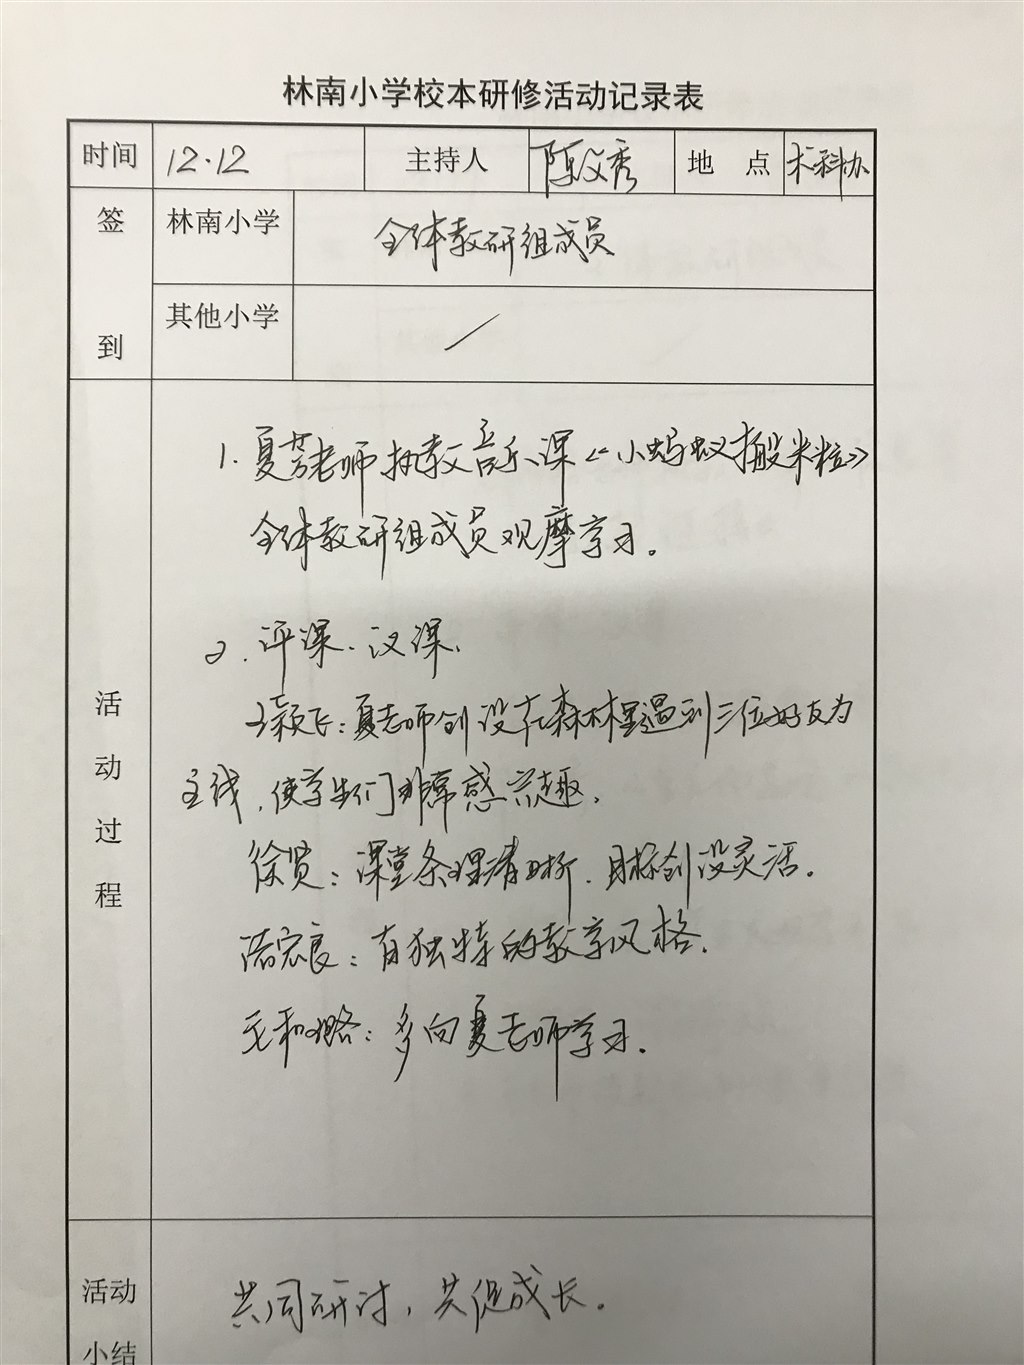 林南小学校本研修活动记录表
时间 12.12 主持人 陈文秀 地 点 术科办
签 林南小学 全体教研组成员
到 其他小学 /
活动过程
1. 夏芳老师执教音乐课《小蚂蚁搬米粒》
全体教研组成员观摩学习。
2. 评课、议课、
王颖飞:夏老师创设在森林里遇到三位好友为
主线,使学生们非常感兴趣。
徐贤:课堂条理清晰、目标创设灵活。
:有独特的教学风格。
:多向夏老师学习。
活动 共同研讨,共促成长。
小结